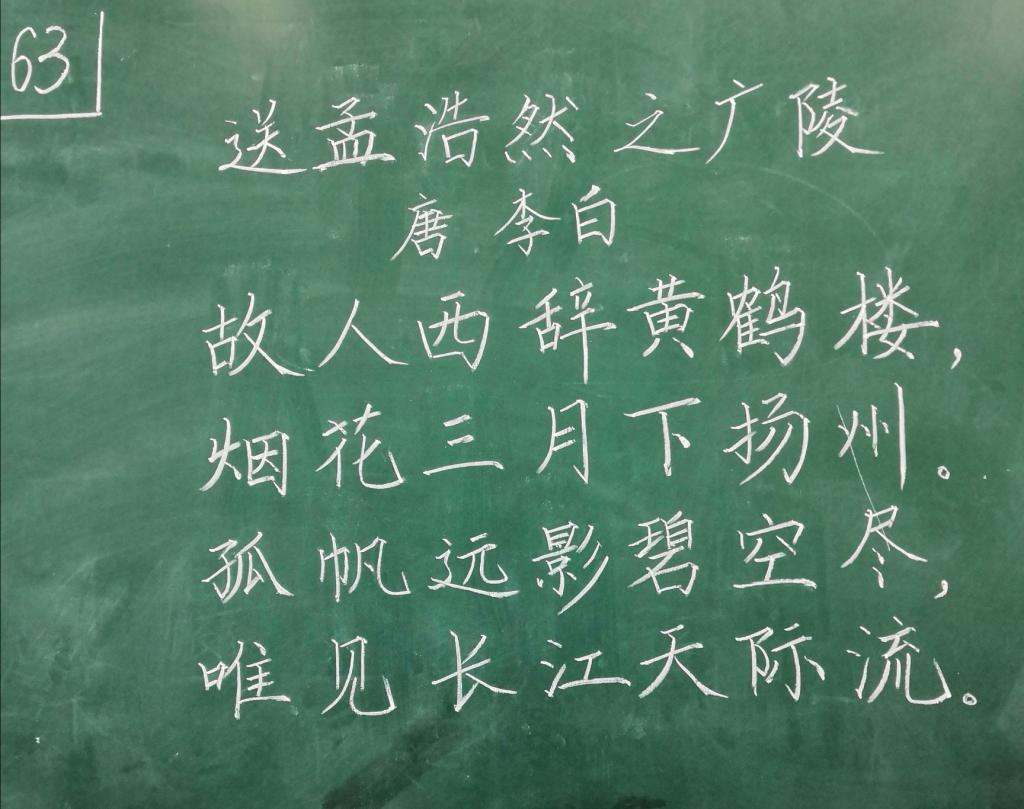 63
送孟浩然之广陵
唐 李白
故人西辞黄鹤楼,
烟花三月下扬州。
孤帆远影碧空尽,
唯见长江天际流。